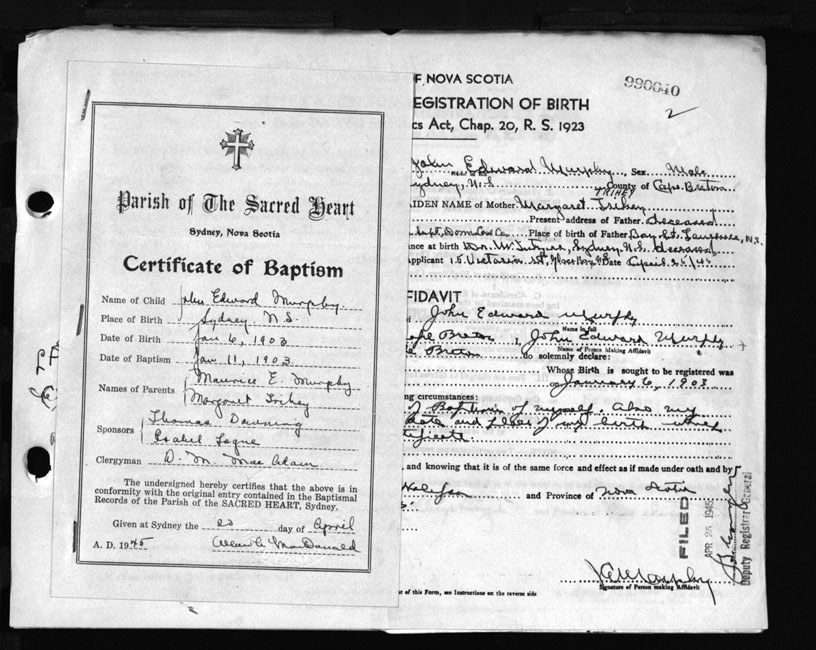 Parish of The Sacred Heart
Sydney, Nova Scotia
Certificate of Baptism
Name of Child John Edward Murphy.
Place of Birth Sydney N S.
Date of Birth Jan 6, 1903
Date of Baptism Jan. 11, 1903
Names of Parents Maurice E. Murphy
Margaret Trihey
Sponsors Thomas Downing
Isabel
Clergyman D. M. MacAdam
The undersigned hereby certifies that the above is in
conformity with the original entry contained in the Baptismal
Records of the Parish of the SACRED HEART, Sydney.
Given at Sydney the 20 day of April
A. D. 1945 MacDonald
OF NOVA SCOTIA
990040
2
EGISTRATION OF BIRTH
cs Act, Chap. 20, R. S. 1923
John Edward Murphy, Sex Male
Sydney, N.S. County of Cape Breton
TRIHEY
AIDEN NAME of Mother Margaret Trihey
Present address of Father deceased
Dom Coal Co. Place of birth of Father Bay St. Lawrence, N.S.
ance at birth Dr. McIntyre, Sydney, N.S. deceased
pplicant 15 Victoria St, Glace Bay Date April 25/45
FFIDAVIT
John Edward Murphy
Name in full
ape Breton I, John Edward Murphy
Name of Person Making Affidavit
e Breton do solemnly declare:
Whose Birth is sought to be registered was
on January 6, 1903
ng circumstances:
of Baptism of myself. Also my
date and place of my birth
tificate.
, and knowing that it is of the same force and effect as if made under oath and by
Halifax and Province of Nova Scotia
FILED
APR 25 1945
Deputy Registrar General
J E Murphy
Signature of Person making Affidavit
t of this Form, see Instructions on the reverse side